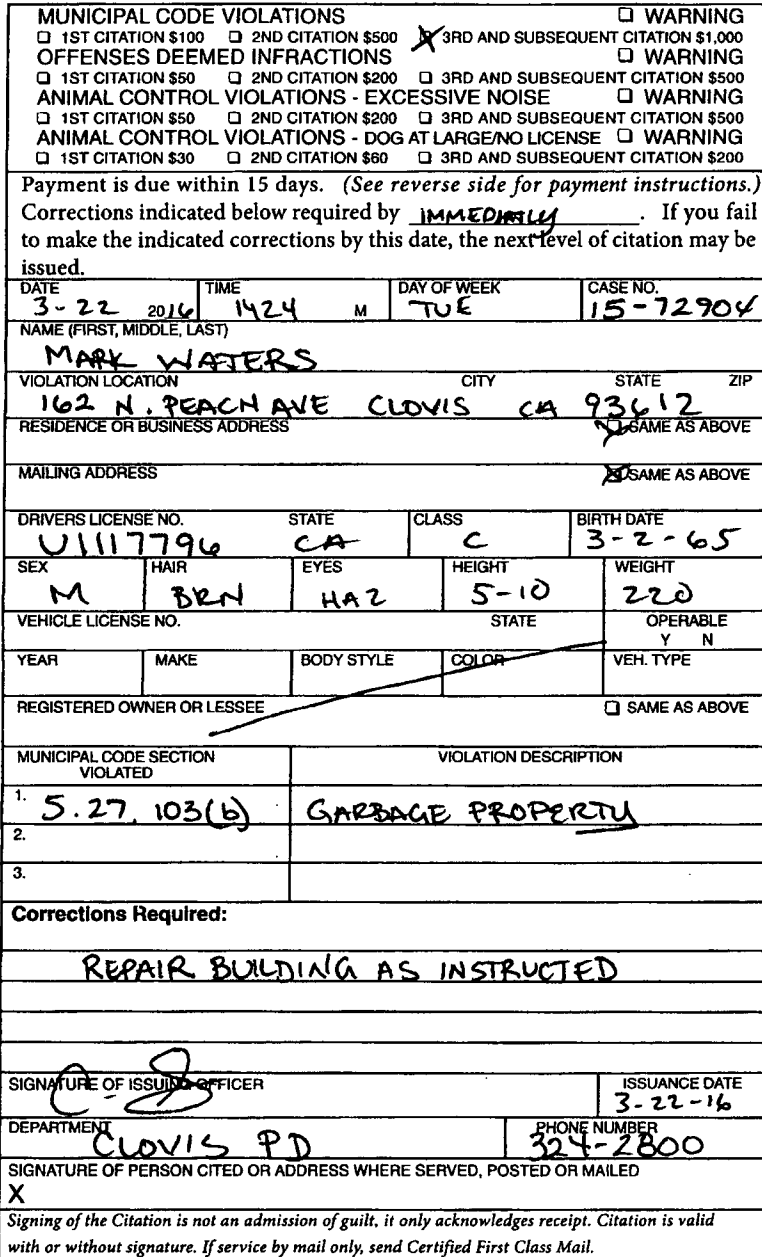 MUNICIPAL CODE VIOLATIONS ☐ WARNING
☐ 1ST CITATION $100 ☐ 2ND CITATION $500 ☒ 3RD AND SUBSEQUENT CITATION $1,000
OFFENSES DEEMED INFRACTIONS ☐ WARNING
☐ 1ST CITATION $50 ☐ 2ND CITATION $200 ☐ 3RD AND SUBSEQUENT CITATION $500
ANIMAL CONTROL VIOLATIONS - EXCESSIVE NOISE ☐ WARNING
☐ 1ST CITATION $50 ☐ 2ND CITATION $200 ☐ 3RD AND SUBSEQUENT CITATION $500
ANIMAL CONTROL VIOLATIONS - DOG AT LARGE/NO LICENSE ☐ WARNING
☐ 1ST CITATION $30 ☐ 2ND CITATION $60 ☐ 3RD AND SUBSEQUENT CITATION $200
Payment is due within 15 days. (See reverse side for payment instructions.)
Corrections indicated below required by IMMEDIATLY. If you fail
to make the indicated corrections by this date, the next level of citation may be
issued.
DATE TIME DAY OF WEEK CASE NO.
3-22 2016 1424 M TUE 15-72904
NAME (FIRST, MIDDLE, LAST)
MARK WATERS
VIOLATION LOCATION CITY STATE ZIP
162 N. PEACH AVE CLOVIS CA 93612
RESIDENCE OR BUSINESS ADDRESS ☒ SAME AS ABOVE
MAILING ADDRESS ☒ SAME AS ABOVE
DRIVERS LICENSE NO. STATE CLASS BIRTH DATE
U1117796 CA C 3-2-65
SEX HAIR EYES HEIGHT WEIGHT
M BRN HAZ 5-10 220
VEHICLE LICENSE NO. STATE OPERABLE
Y N
YEAR MAKE BODY STYLE COLOR VEH. TYPE
REGISTERED OWNER OR LESSEE ☐ SAME AS ABOVE
MUNICIPAL CODE SECTION VIOLATION DESCRIPTION
VIOLATED
1. 5.27.103(b) GARBAGE PROPERTY
2.
3.
Corrections Required:
REPAIR BUILDING AS INSTRUCTED
SIGNATURE OF ISSUING OFFICER ISSUANCE DATE
3-22-16
DEPARTMENT PHONE NUMBER
CLOVIS PD 324-2800
SIGNATURE OF PERSON CITED OR ADDRESS WHERE SERVED, POSTED OR MAILED
X
Signing of the Citation is not an admission of guilt, it only acknowledges receipt. Citation is valid
with or without signature. If service by mail only, send Certified First Class Mail.